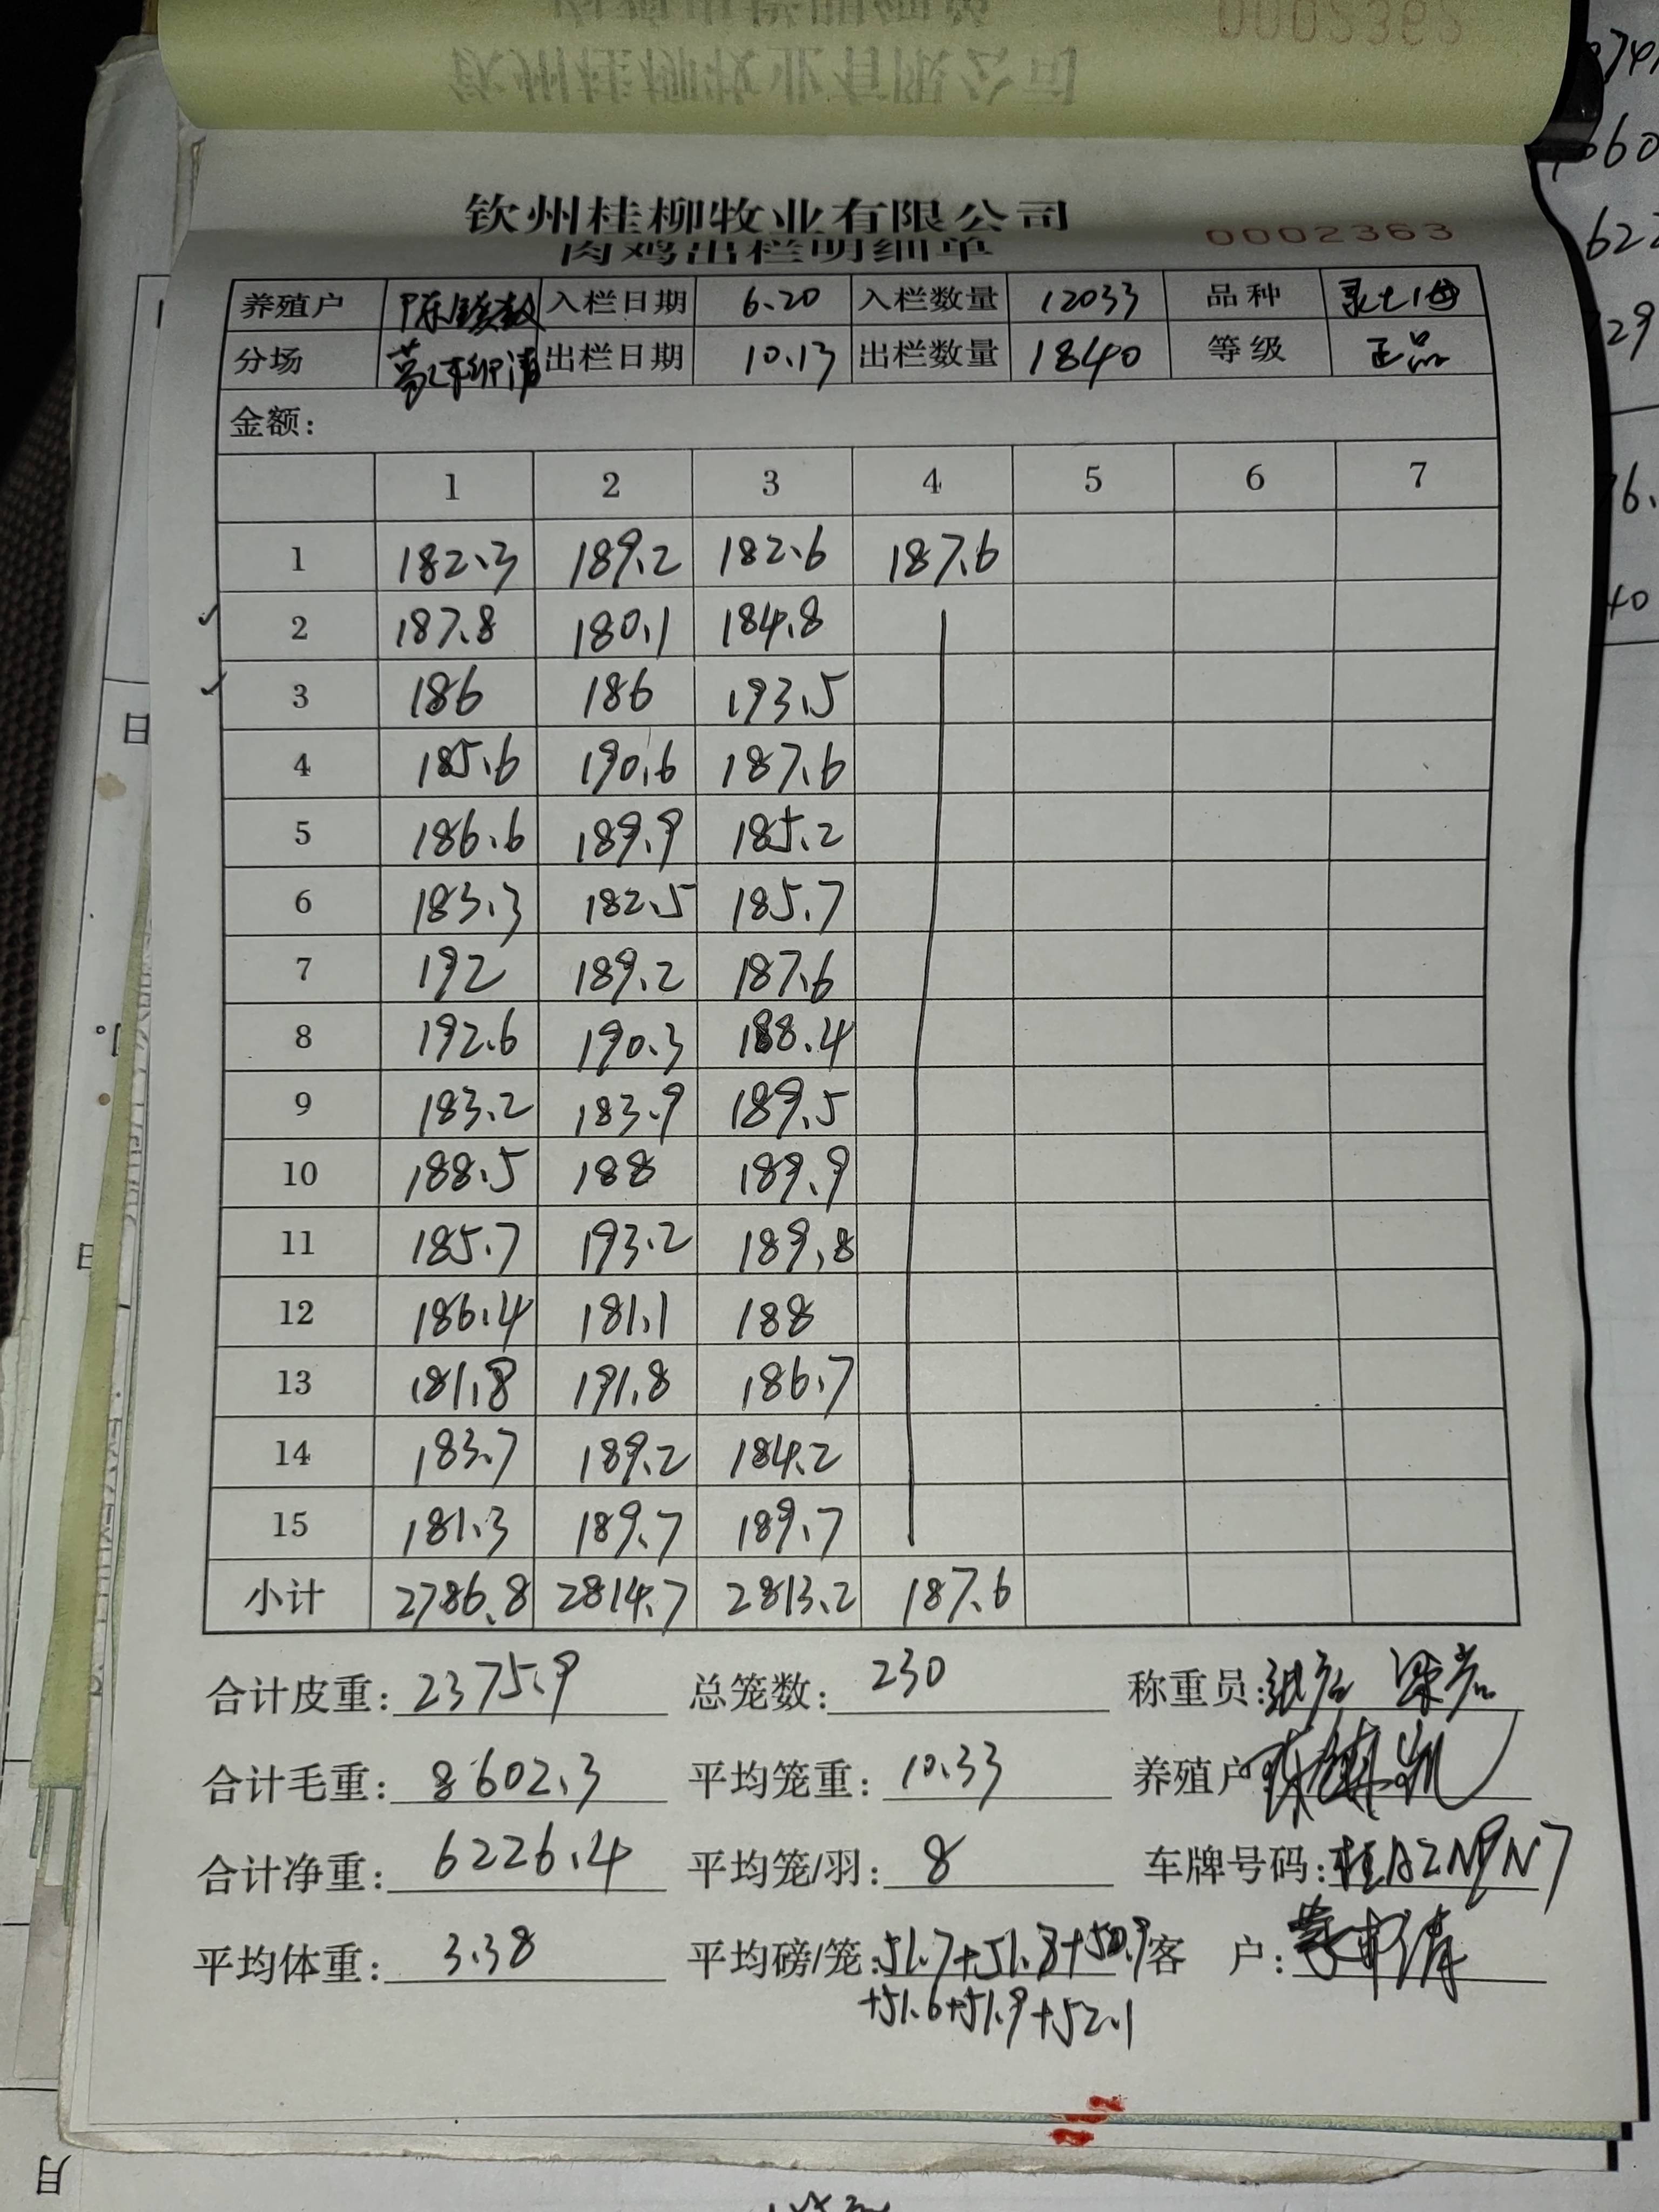 钦州桂柳牧业有限公司
肉鸡出栏明细单
0002363
养殖户 入栏日期 6.20 入栏数量 12033 品种
分场 出栏日期 10.13 出栏数量 1840 等级 正品
金额:
1 2 3 4 5 6 7
1 182.3 189.2 182.6 187.6
2 187.8 180.1 184.8
3 186 186 193.5
4 185.6 190.6 187.6
5 186.6 189.9 185.2
6 183.3 182.5 185.7
7 192 189.2 187.6
8 192.6 190.3 188.4
9 183.2 183.9 189.5
10 188.5 188 189.9
11 185.7 193.2 189.8
12 186.4 181.1 188
13 181.8 191.8 186.7
14 183.7 189.2 184.2
15 181.3 189.7 189.7
小计 2786.8 2814.7 2813.2 187.6
合计皮重: 2375.9 总笼数: 230 称重员:
合计毛重: 8602.3 平均笼重: 10.33 养殖户
合计净重: 6226.4 平均笼/羽: 8 车牌号码: 桂AZN9N7
平均体重: 3.38 平均磅/笼: 51.7+51.8+50.9 客 户:
+51.6+51.9+52.1